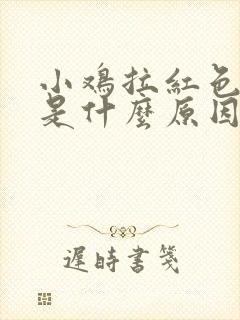 小鸡拉红色
是什麼原因
遲時書箋